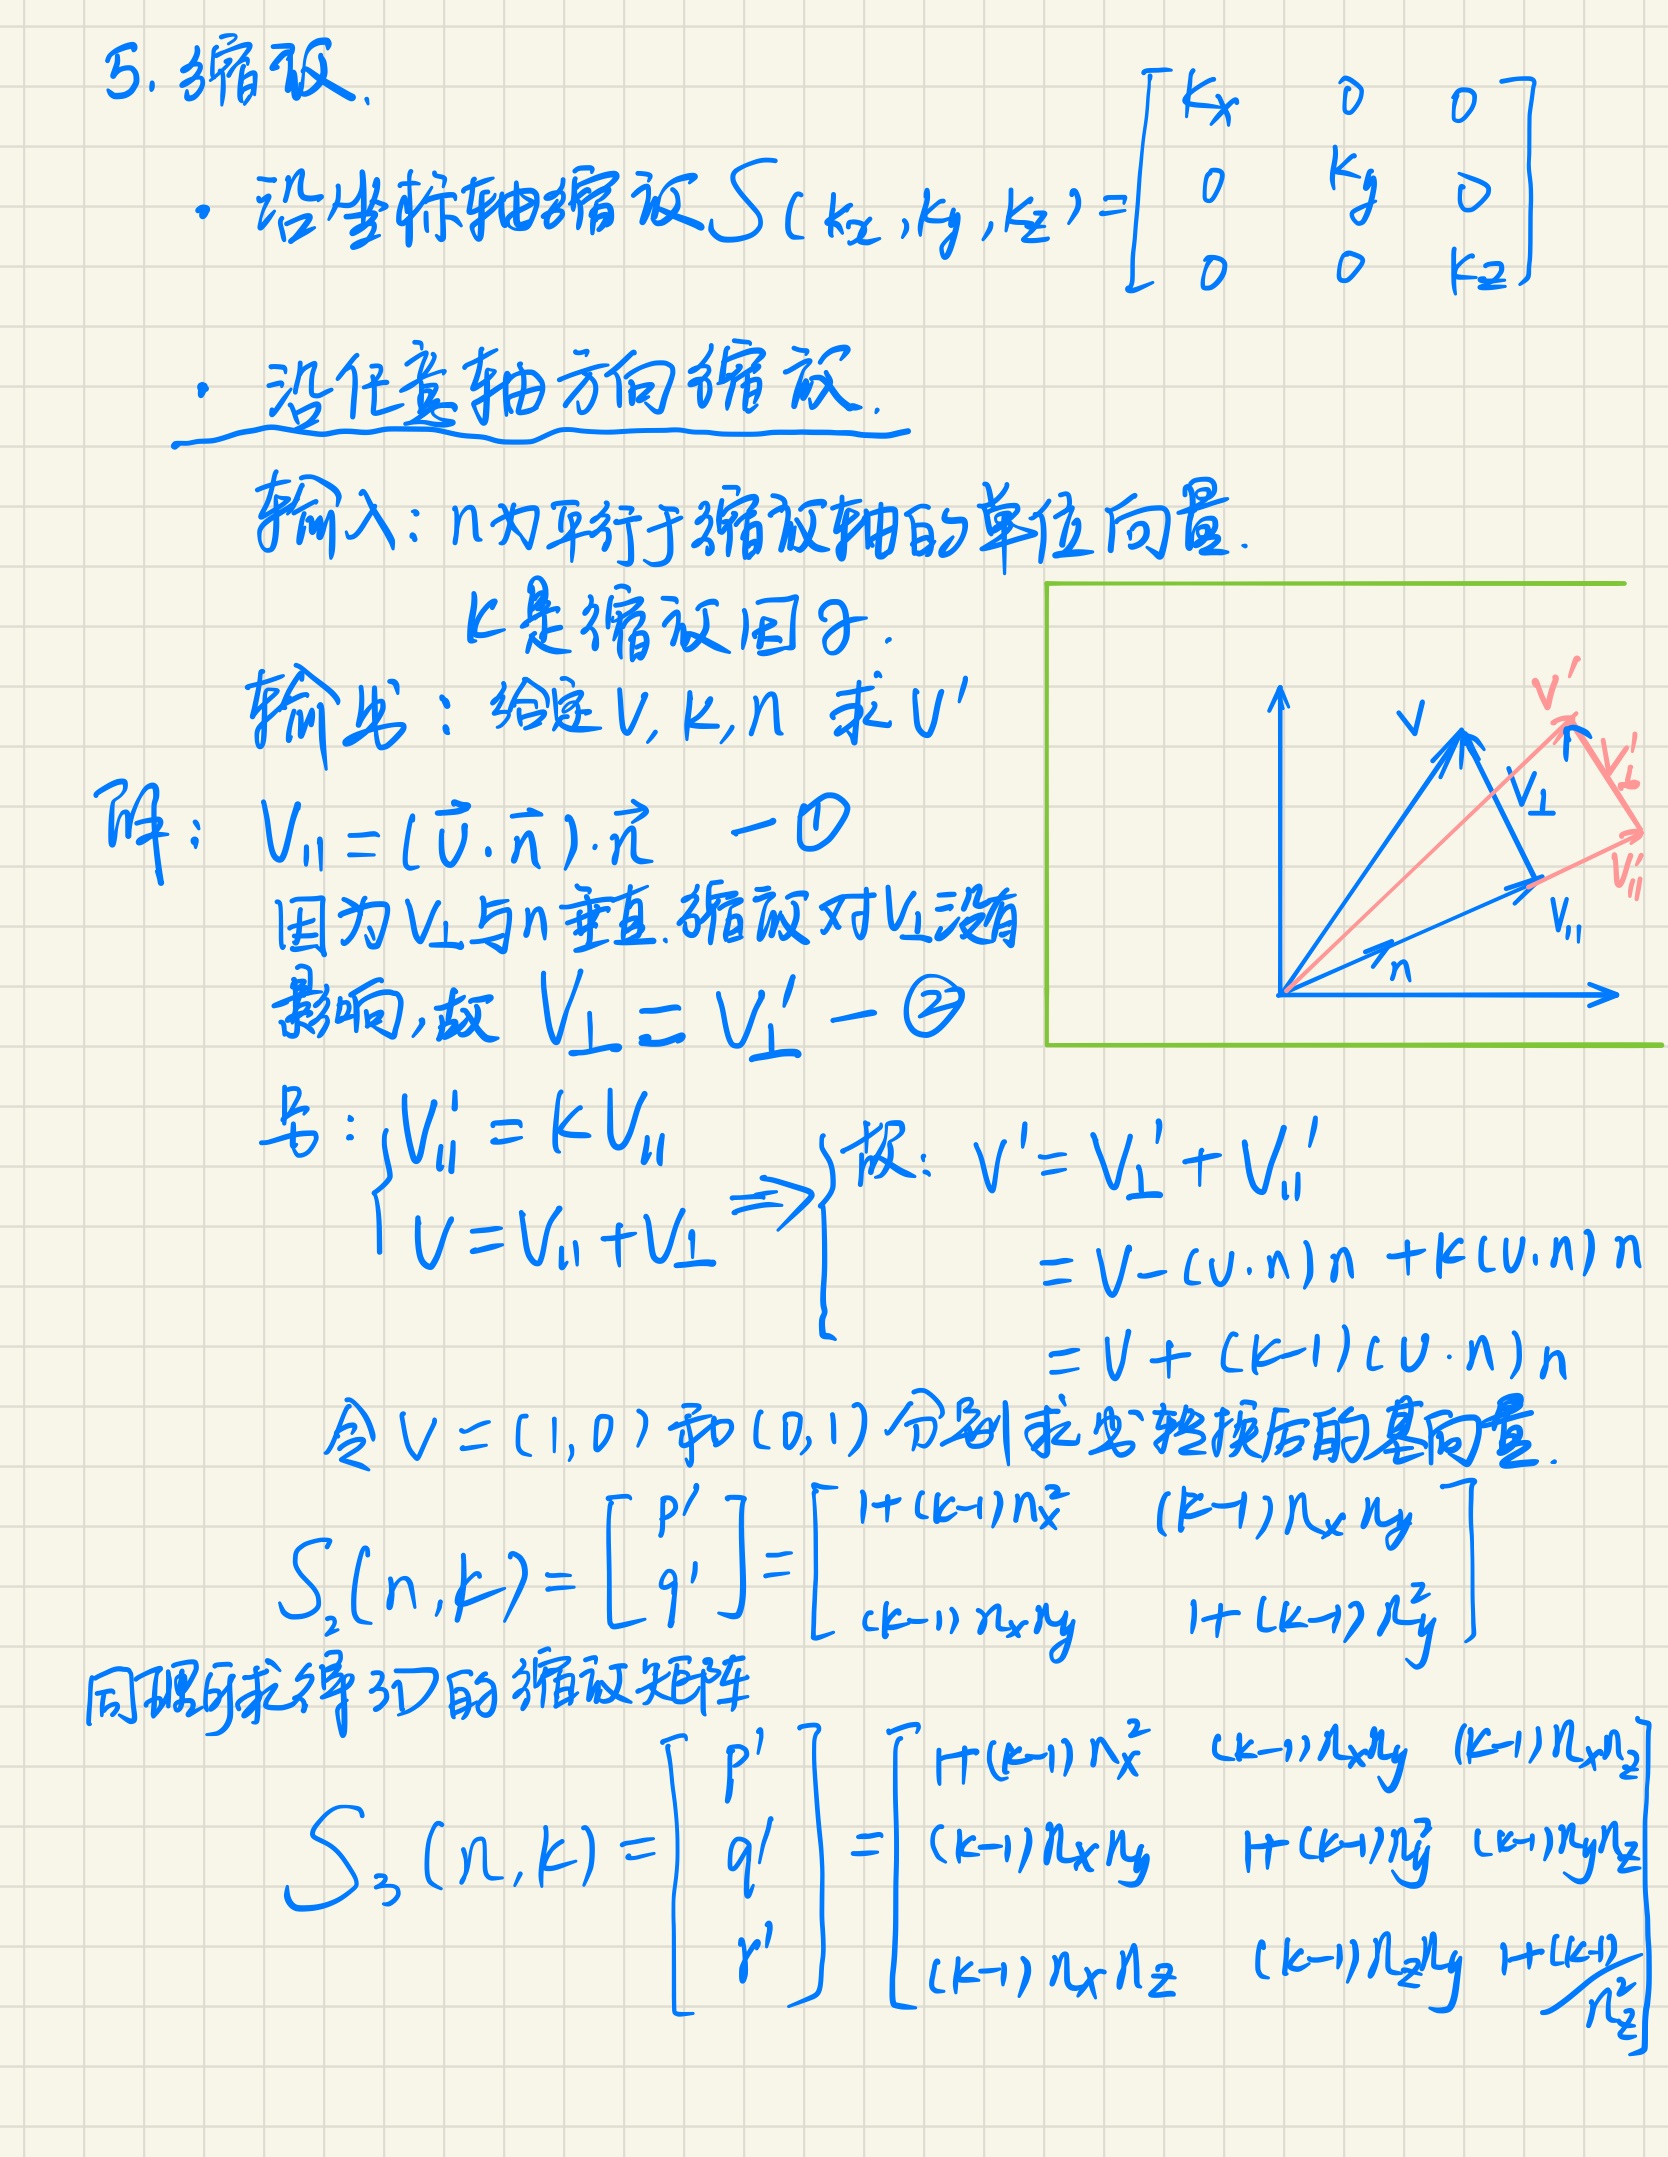 5. 缩放.
· 沿坐标轴缩放 S(kx, ky, kz) = [kx 0 0
0 ky 0
0 0 kz]
· 沿任意轴方向缩放.
输入: n为平行于缩放轴的单位向量.
k是缩放因子.
输出: 给定 V, k, n 求 V'
解: V∥ = (v⃗·n⃗)·n⃗ — ①
因为V⊥与n垂直.缩放对V⊥没有
影响,故 V⊥ = V⊥' — ②
另: { V∥' = kV∥
V = V∥ + V⊥
⇒ { 故: V' = V⊥' + V∥'
= V - (v·n)n + k(v·n)n
= V + (k-1)(v·n)n
令 V = (1,0) 和 (0,1) 分别求出转换后的基向量.
S₂(n,k) = [p' q'] = [1+(k-1)nx² (k-1)nx ny
(k-1)nx ny 1+(k-1)ny²]
同理可求得3D的缩放矩阵
S₃(n,k) = [p' q' r'] = [1+(k-1)nx² (k-1)nx ny (k-1)nx nz
(k-1)nx ny 1+(k-1)ny² (k-1)ny nz
(k-1)nx nz (k-1)nz ny 1+(k-1)nz²]
V
V'
V⊥
V⊥'
V∥'
V∥
n